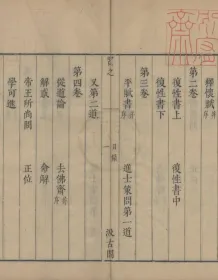 釋懷賦并序
第二卷
復性書上 復性書中
復性書下
第三卷
平賦書并序 進士策問第一道
習之 目錄 汲古閣
又第二道
第四卷
從道論 去佛齋并序
解惑 命解
帝王所尚問 正位
學可進